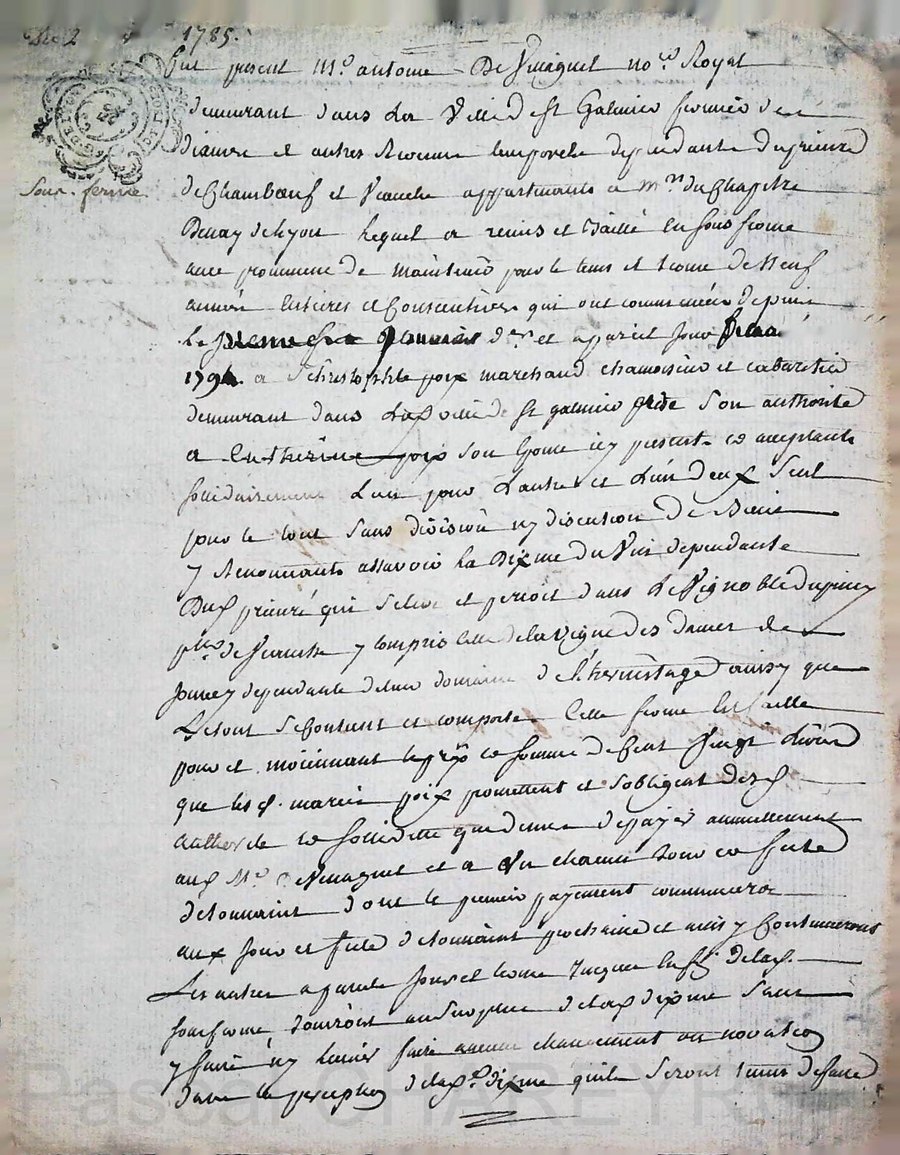 1785.
fut present Mre antoine De Vinagnet nore Royal
demeurant dans La Ville de st Galmier fermier de
Diames et autres Revenu temporelle dependante du prieuré
Sous-ferme
de Chambœuf et Veauche appartenants a mrs du Chapitre
Denay de Lyon Lequel a remis et Baillé En Sous ferme
avec promesse de maintenir pour le tems et terme de Neuf
année Entieres et Consecutives qui ont commencées depuis
Le premier janvier der et a pareil jour
179 a Christophle poix marchand chamoiseur et cabaretier
demeurant dans Lad ville de st galmier Son authorité
a Catherine poix Son icy presents et acceptants
sollidairement L'un pour L'autre et L'un deux Seul
pour le tout Sans division ny discution de Biens
y Renonnants assavoir La Dixme du Vin dependante
Dud prieuré qui Se leve et perçoit dans Le Vignoble du
de Veauche y compris Celle de la Vigne des Dames de
Jourcey dependante de leur domaine de L'hermitage ainsy que
Le tout Se Contient et comporte Cette ferme Est faitte
pour et moiennant le prix et somme de Cent Vingt Livres
que les d. mariés poix promettent et Sobligent
de sollidité que dessus de payer annuellement
aud Me De Vinagnet et a Un chacun jour et feste
de toussaint dont le premier payement commencera
aux jour et feste de toussaint prochaine et ainsy Continueront
Les autres a pareils jours et terme Jusques En fin de lad.
sousferme de lad dixme Sans
y faire ny Laisser faire aucun changement ou novation
dans la perception de lad. dixme quils Seront tenus de faire
Pascal CHAREYR